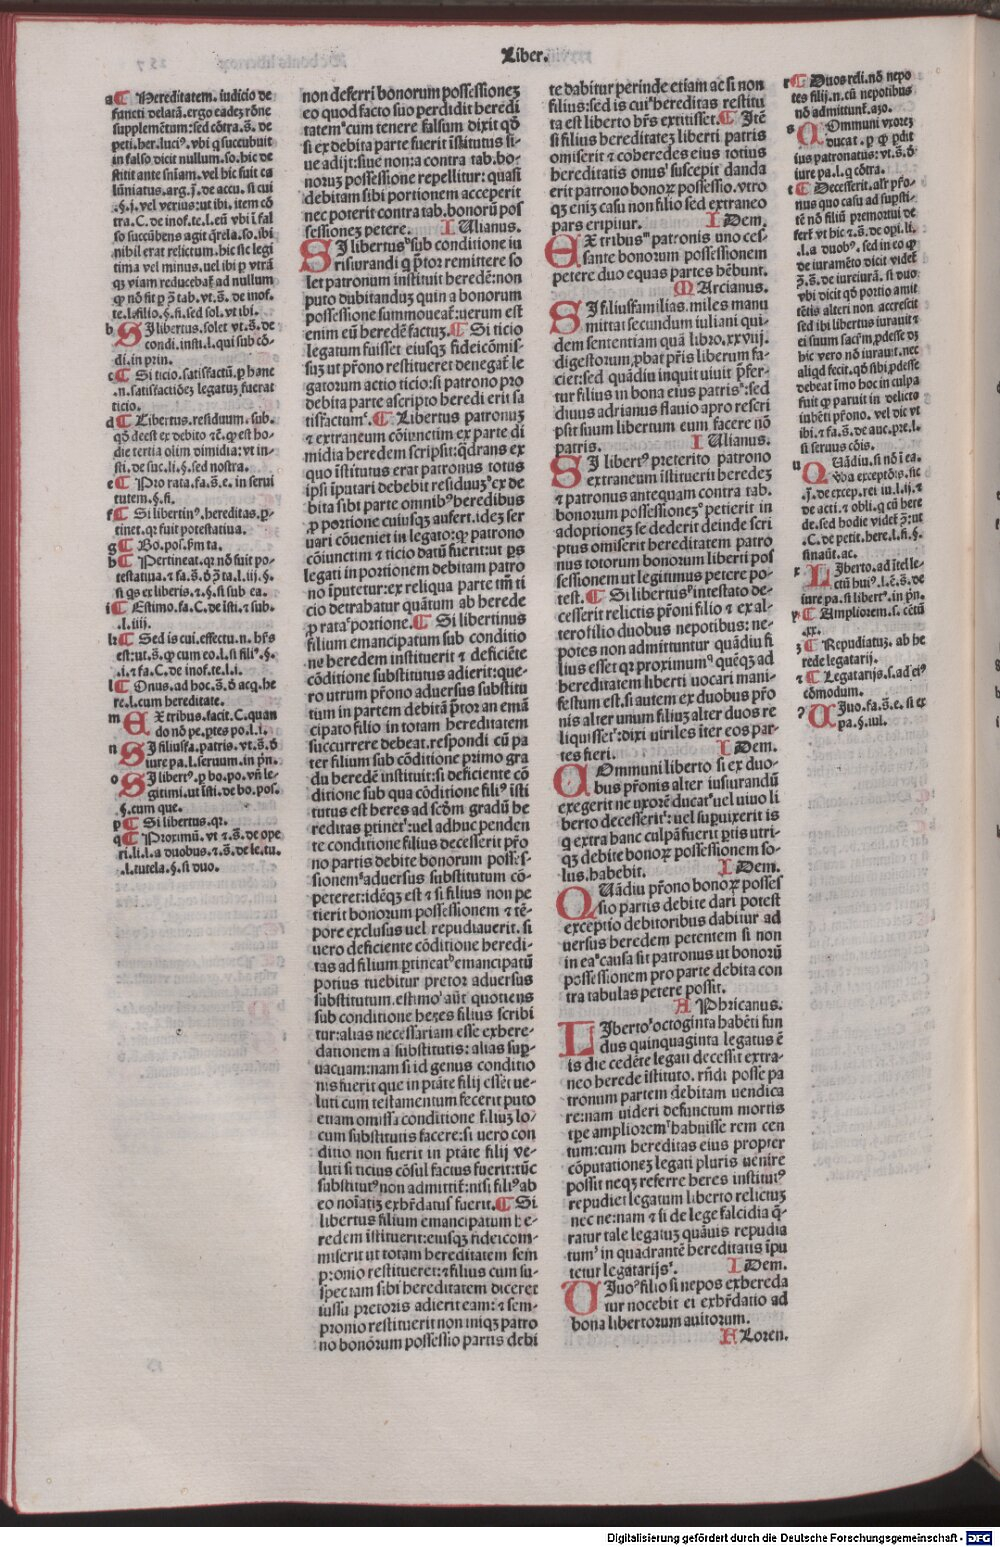 Liber.
a ¶ Hereditatem. iudicio de
functi delatā. ergo eadeʒ rōne
supplemētum: sed cōtra. s̄. de
peti. her. luciꝰ. vbi ꝙ succubuit
in falso dicit nullum. so. hic de
stitit ante sniam. vel hic fuit ca
lūniatus. arg. j̄. de accu. si cui
§. j. vel verius: ut ibi. item cō
tra. C. de inof. te. l. eū vbi ī fal
so succūbens agit q̄rela. so. ibi
nihil erat relictum. hic sic legi
tima vel minus. uel ibi
nō fit
te. l. filio. §. fi. sed sol. vt ibi.
b SI libertus. solet vt. s̄. de
condi. insti. l. qui sub cō
di. in prin.
c ¶ Si ticio. satisfactū. p hanc
.n. satisfactiōeʒ legatuʒ fuerat
ticio.
d ¶ Libertus. residuum. sub.
qd̄ deest ex debito ⁊c̄. ꝙ est ho
die tertia olim dimidia: vt in
sti. de suc. li. §. sed nostra.
e ¶ Pro rata. fa. s̄. e. in serui
tutem. §. fi.
f ¶ Si libertinꝰ. hereditas. p̱
tinet. qr fuit potestatiua.
g ¶ Bo. pos. p̄m ta.
h ¶ Pertineat. qr nō fuit po-
testatiua. ⁊ fa. s̄. d̄ ꝯ̄ ta. l. iij. §.
si qs ex liberis. ⁊. §. si sub ea.
i ¶ Estimo. fa. C. de īsti. ⁊ sub.
.l. iiij.
k ¶ Sed is cui. effectu. n. hr̄s
est: ut. s̄. ꝙ cum eo. l. si filiꝰ. §.
.i. ⁊ fa. C. de inof. te. l. i.
l ¶ Onus. ad hoc. s̄. d̄ acq. he
re. l. cum hereditate.
m EX tribus. facit. C. quan
do nō pe. ptes po. l. i.
n SI filiusfa. patris. vt. s̄. d̄
iure pa. l. seruum. in pn̄.
o SI libertꝰ. p bo. po. vn̄ le-
gitimi. ut īsti. de bo. pos.
§. cum que.
p ¶ Si libertus. qr.
q ¶ Proximū. vt ⁊. s̄. de ope
ri. li. l. a duobus. ⁊. s̄. de le. tu.
.l. tutela. §. si duo.
non deferri bonorum possessioneʒ
eo quod facto suo perdidit heredi
tatemᵃ cum tenere falsum dixit qd̄
si ex debita parte fuerit īstitutus si-
ue adijt: siue non: a contra tab. bo-
noruʒ possessione repellitur: quasi
debitam sibi portionem acceperit
nec poterit contra tab. bonorū pos
sessioneʒ petere. IUlianus.
SI libertusᵇ sub conditione iu
risiurandi q̄ p̄tor remittere so
let patronum instituit heredē: non
puto dubitanduʒ quin a bonorum
possessione summoueat̄: uerum est
enim eū heredē factuʒ. ¶ Si ticio
legatum fuisset eiusqʒ fideicōmis-
suʒ ut pr̄ono restitueret denegat̄ le
gatorum actio ticio: si patrono pro
debita parte ascripto heredi erit sa
tisfactumᶜ. ¶ Libertus patronuʒ
⁊ extraneum cōiunctim ex parte di
midia heredem scripsit: q̄drans ex
quo īstitutus erat patronus totus
ipsi īputari debebit residuuʒᵈ ex de
bita sibi parte omnibꝰ heredibus
p portione cuiusqʒ aufert. ideʒ ser
uari cōueniet in legato: qd̄ patrono
cōiunctim ⁊ ticio datū fuerit: ut ps
legati in portionem debitam patro
no īputetur: ex reliqua parte tm̄ ti
cio detrabatur quātum ab herede
p rataᵉ portione. ¶ Si libertinus
filium emancipatum sub conditio
ne heredem instituerit ⁊ deficiēte
cōditione substitutus adierit: que-
ro utrum pr̄ono aduersus substitu
tum in partem debitā p̄tor an emā
cipato filio in totam hereditatem
succurrere debeat. respondi cū pa
ter filium sub cōditione primo gra
du heredē instituit: si deficiente cō
ditione sub qua cōditione filiꝰ īsti
tutus est heres ad scd̄m gradū he
reditas p̱tineret: uel adhuc penden
te conditione filius decesserit pr̄o
no partis debite bonorum posses-
sionemᵍ aduersus substitutum cō-
peteret: idēqʒ est ⁊ si filius non pe
tierit bonorum possessionem ⁊ tē-
pore exclusus uel repudiauerit. si
uero deficiente cōditione heredi-
tas ad filium p̱tineatʰ emancipatū
potius tuebitur pretor aduersus
substitutum. estimoⁱ aūt quotiens
sub conditione heres filius scribi
tur: alias necessariam esse exhere-
dationem a substitutis: alias supe
uacuam: nam si id genus conditio
nis fuerit que in p̄tāte filij esset ue-
luti cum testamentum fecerit puto
etiam omissa conditione filiuʒ lo-
cum substitutis facere: si uero con
ditio non fuerit in p̄tāte filij ve-
luti si ticius cōsul factus fuerit: tūc
substitutꝰ non admittit̄: nisi filiꝰ ab
eo noīatiʒ exhr̄datus fuerit. ¶ Si
libertus filium emancipatum he-
redem īstituerit: eiusqʒ fideicom-
miserit ut totam hereditatem sem
pronio restitueret: ⁊ filius cum su-
spectam sibi hereditatem diceret
iussu pretoris adierit eam: ⁊ sem-
pronio restituerit non iniqʒ patro
no bonōrum possessio partis debi
te dabitur perinde etiam ac si non
filius: sed is cuiᵏ hereditas restitu
ta est liberto hr̄s extitisset. ¶ Itē
si filius hereditateʒ liberti patris
omiserit ⁊ coheredes eius totius
hereditatis onusˡ suscepit danda
erit patrono bonoꝝ possessio. vtro
qʒ eniʒ casu non filio sed extraneo
pars eripitur. IDem.
EX tribusᵐ patronis uno ces-
sante bonorum possessionem
petere duo equas partes hēbunt.
MArcianus.
SI filiusfamilias. miles manu
mittat secundum iuliani qui-
dem sententiam quā libro. xxvij.
digestorum. ꝓbat pr̄is liberum fa-
ciet: sed quādiu inquit uiuit p̄fer-
tur filius in bona eius patrisⁿ: sed
diuus adrianus flauio apro rescri
psit suum libertum eum facere nō
patris. IUlianus.
SI libertꝰ preterito patrono
extraneum īstituerit heredeʒ
⁊ patronus antequam contra tab.
bonorum possessioneʒ petierit in
adoptioneʒ se dederit deinde scri
ptus omiserit hereditatem patro
nus totorum bonorum liberti pos
sessionem ut legitimus petere po-
test. ¶ Si libertusᵖ intestato de-
cesserit relictis pr̄oni filio ⁊ ex al-
tero filio duobus nepotibus: ne-
potes non admittuntur quādiu fi
lius esset qr proximum quēqʒ ad
hereditatem liberti uocari mani-
festum est. si autem ex duobus pr̄o
nis alter unum filiuʒ alter duos re
liquisset: dixi uiriles īter eos par-
tes fieri. IDem.
COmmuni liberto si ex duo-
bus pr̄onis alter iusiurandū
exegerit ne uxorē ducat uel uiuo li
berto decesserit: uel supuixerit is
q̱ extra hanc culpā fuerit p̱tis utri-
qʒ debite bonoꝝ possessionem so-
lus. habebit. IDem.
QUādiu pr̄ono bonoꝝ posses
sio partis debite dari potest
exceptio debitoribus dabitur ad
uersus heredem petentem si non
in ea causa sit patronus ut bonorū
possessionem pro parte debita con
tra tabulas petere possit.
APhricanus.
LIberto octoginta habēti fun
dus quinquaginta legatus ē
is die cedēte legati decessit extra-
neo herede īstituto. rn̄di posse pa
tronum partem debitam uendica
re: nam uideri defunctum mortis
tp̄e ampliorem habuisse rem cen
tum: cum hereditas eius propter
cōputationeʒ legati pluris uenire
possit neqʒ referre heres institutꝰ
repudiet legatum liberto relictuʒ
nec ne: nam ⁊ si de lege falcidia q̄-
ratur tale legatuʒ quāuis repudia
tum in quadrantē hereditatis īpu
tetur legatarijs. IDem.
UIuo filio si nepos exhereda
tur nocebit ei exhr̄datio ad
bona libertorum auitorum.
FLoren.
r ¶ Duos reli. nō nepo
tes filij. n. cū nepotibus
nō admittunt̄. azo.
s COmmuni vxoreʒ
ducat. p ꝙ p̱dit
ius patronatus: vt. s̄. d̄
iure pa. l. q cōtra.
t ¶ Decesserit. alr̄ pr̄o-
nus quo casu ad supsti-
tē nō filiū premortui de
fert̄ vt hic ⁊ s̄. de opi. li.
.l. a duobꝰ. sed in eo ꝙ
de iuramēto dicit videt̄
ꝯ̄. s̄. de iureiurā. si duo
vbi dicit qd̄ portio amit
tētis alteri non accrescit
sed ibi libertus iurauit ⁊
ei suum sacr̄m ꝓdesse d̄ʒ
hic vero nō iurauit. nec
aliqd fecit. qd̄ sibi ꝓdesse
debeat īmo hoc in culpa
fuit ꝙ paruit in delicto
iubēti pr̄ono. vel dic vt
ibi. ⁊ fa. s̄. de auc. pre. l.
si seruus cōis.
u QUādiu. si nō ī ea.
Uba exceptōis. sic
.j̄. de excep. rei iu. l. ij. ⁊
de acti. ⁊ obli. q cū here
de. sed hodie videt̄ ꝯ̄: ut
.C. de petit. here. l. fi. §.
sinaūt. ac.
x LIberto. ad ītelle-
ctū huiꝰ. l. c̄. s̄. de
iure pa. si libertꝰ. in pn̄.
y ¶ Ampliorem. s. cētū
.xx.
ʒ ¶ Repudiatuʒ. ab he
rede legatarij.
⁊ ¶ Legatarijs. s. ad eiꝰ
cōmodum.
ꝯ UIuo. fa. s̄. e. si ex
pa. §. iul.
Digitalisierung gefördert durch die Deutsche Forschungsgemeinschaft - DFG